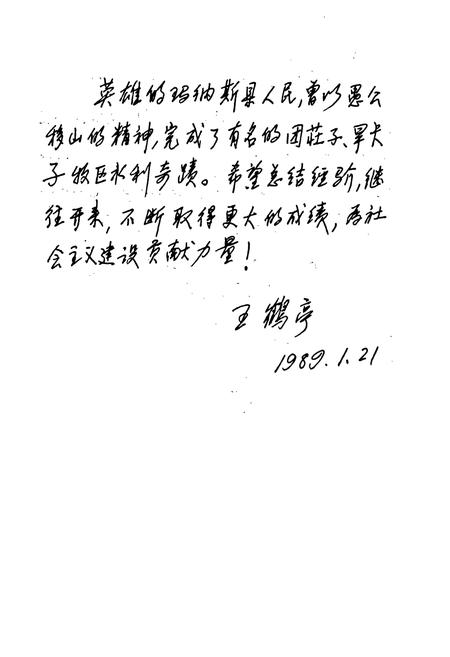 英雄的玛纳斯县人民,曾以愚公
移山的精神,完成了有名的团莊子、旱卡
子牧区水利奇蹟。希望总结经验,继
往开来,不断取得更大的成绩,为社
会主义建设贡献力量!
王鹤亭
1989.1.21